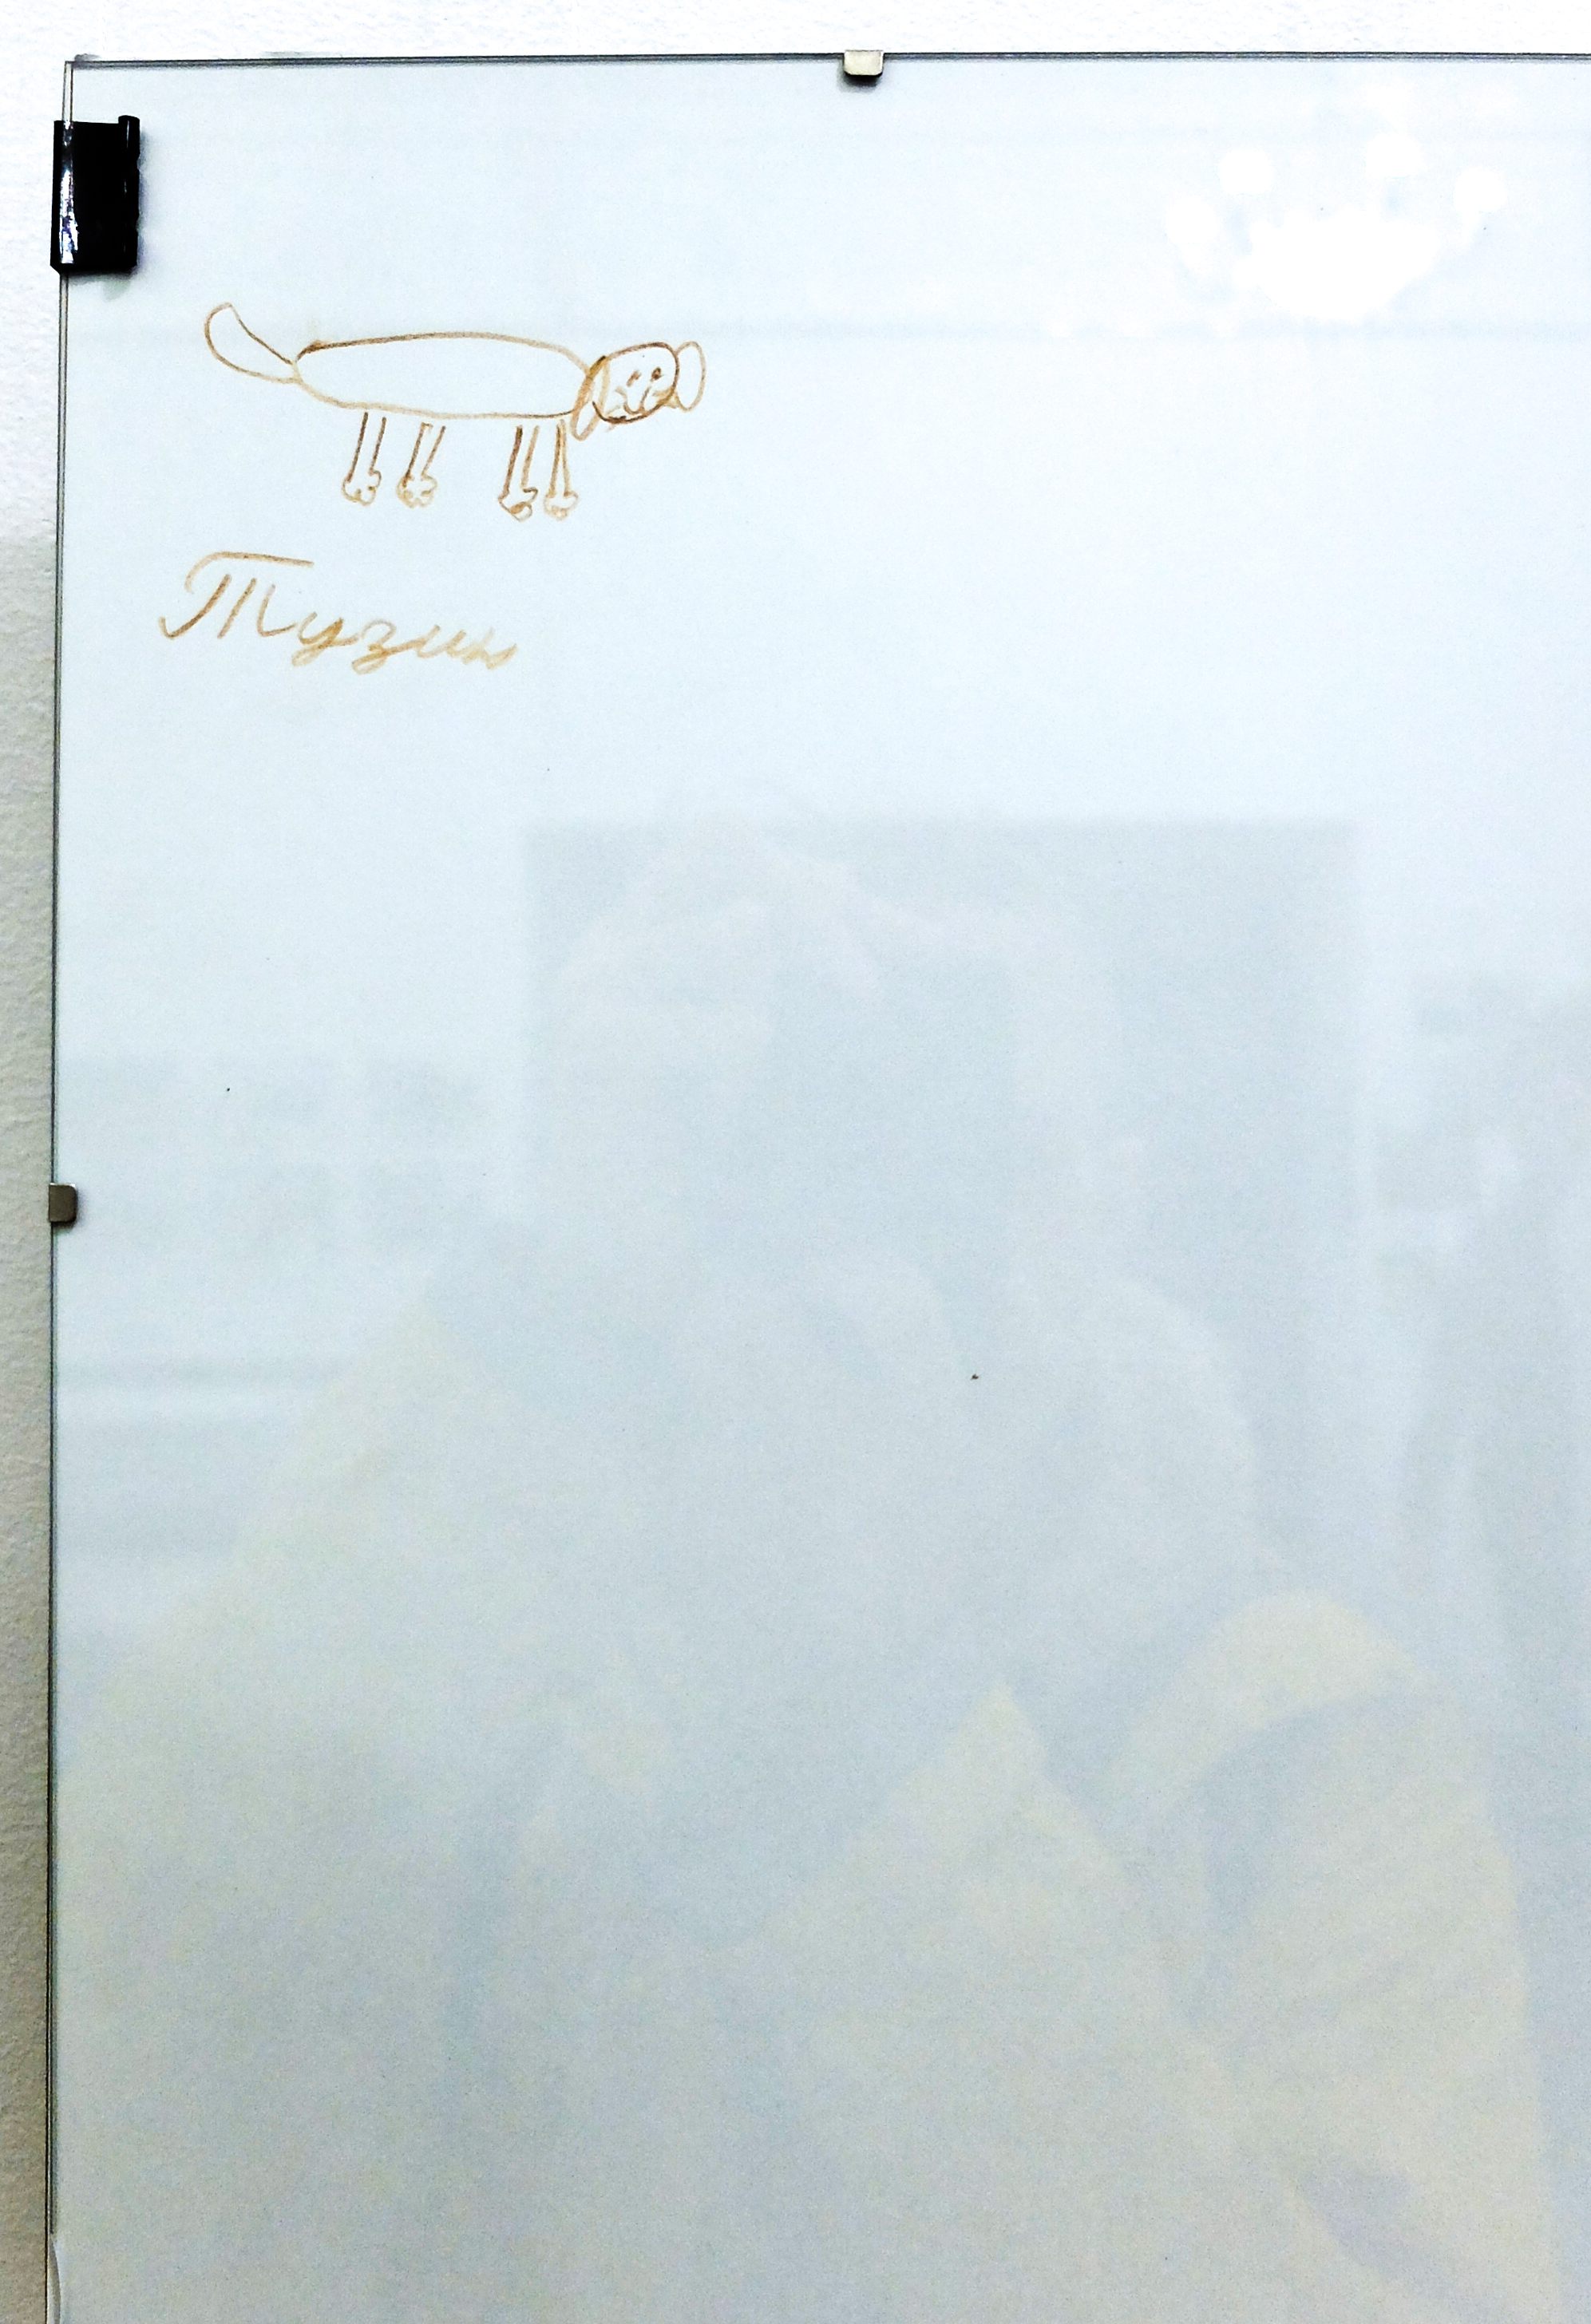 Тузик